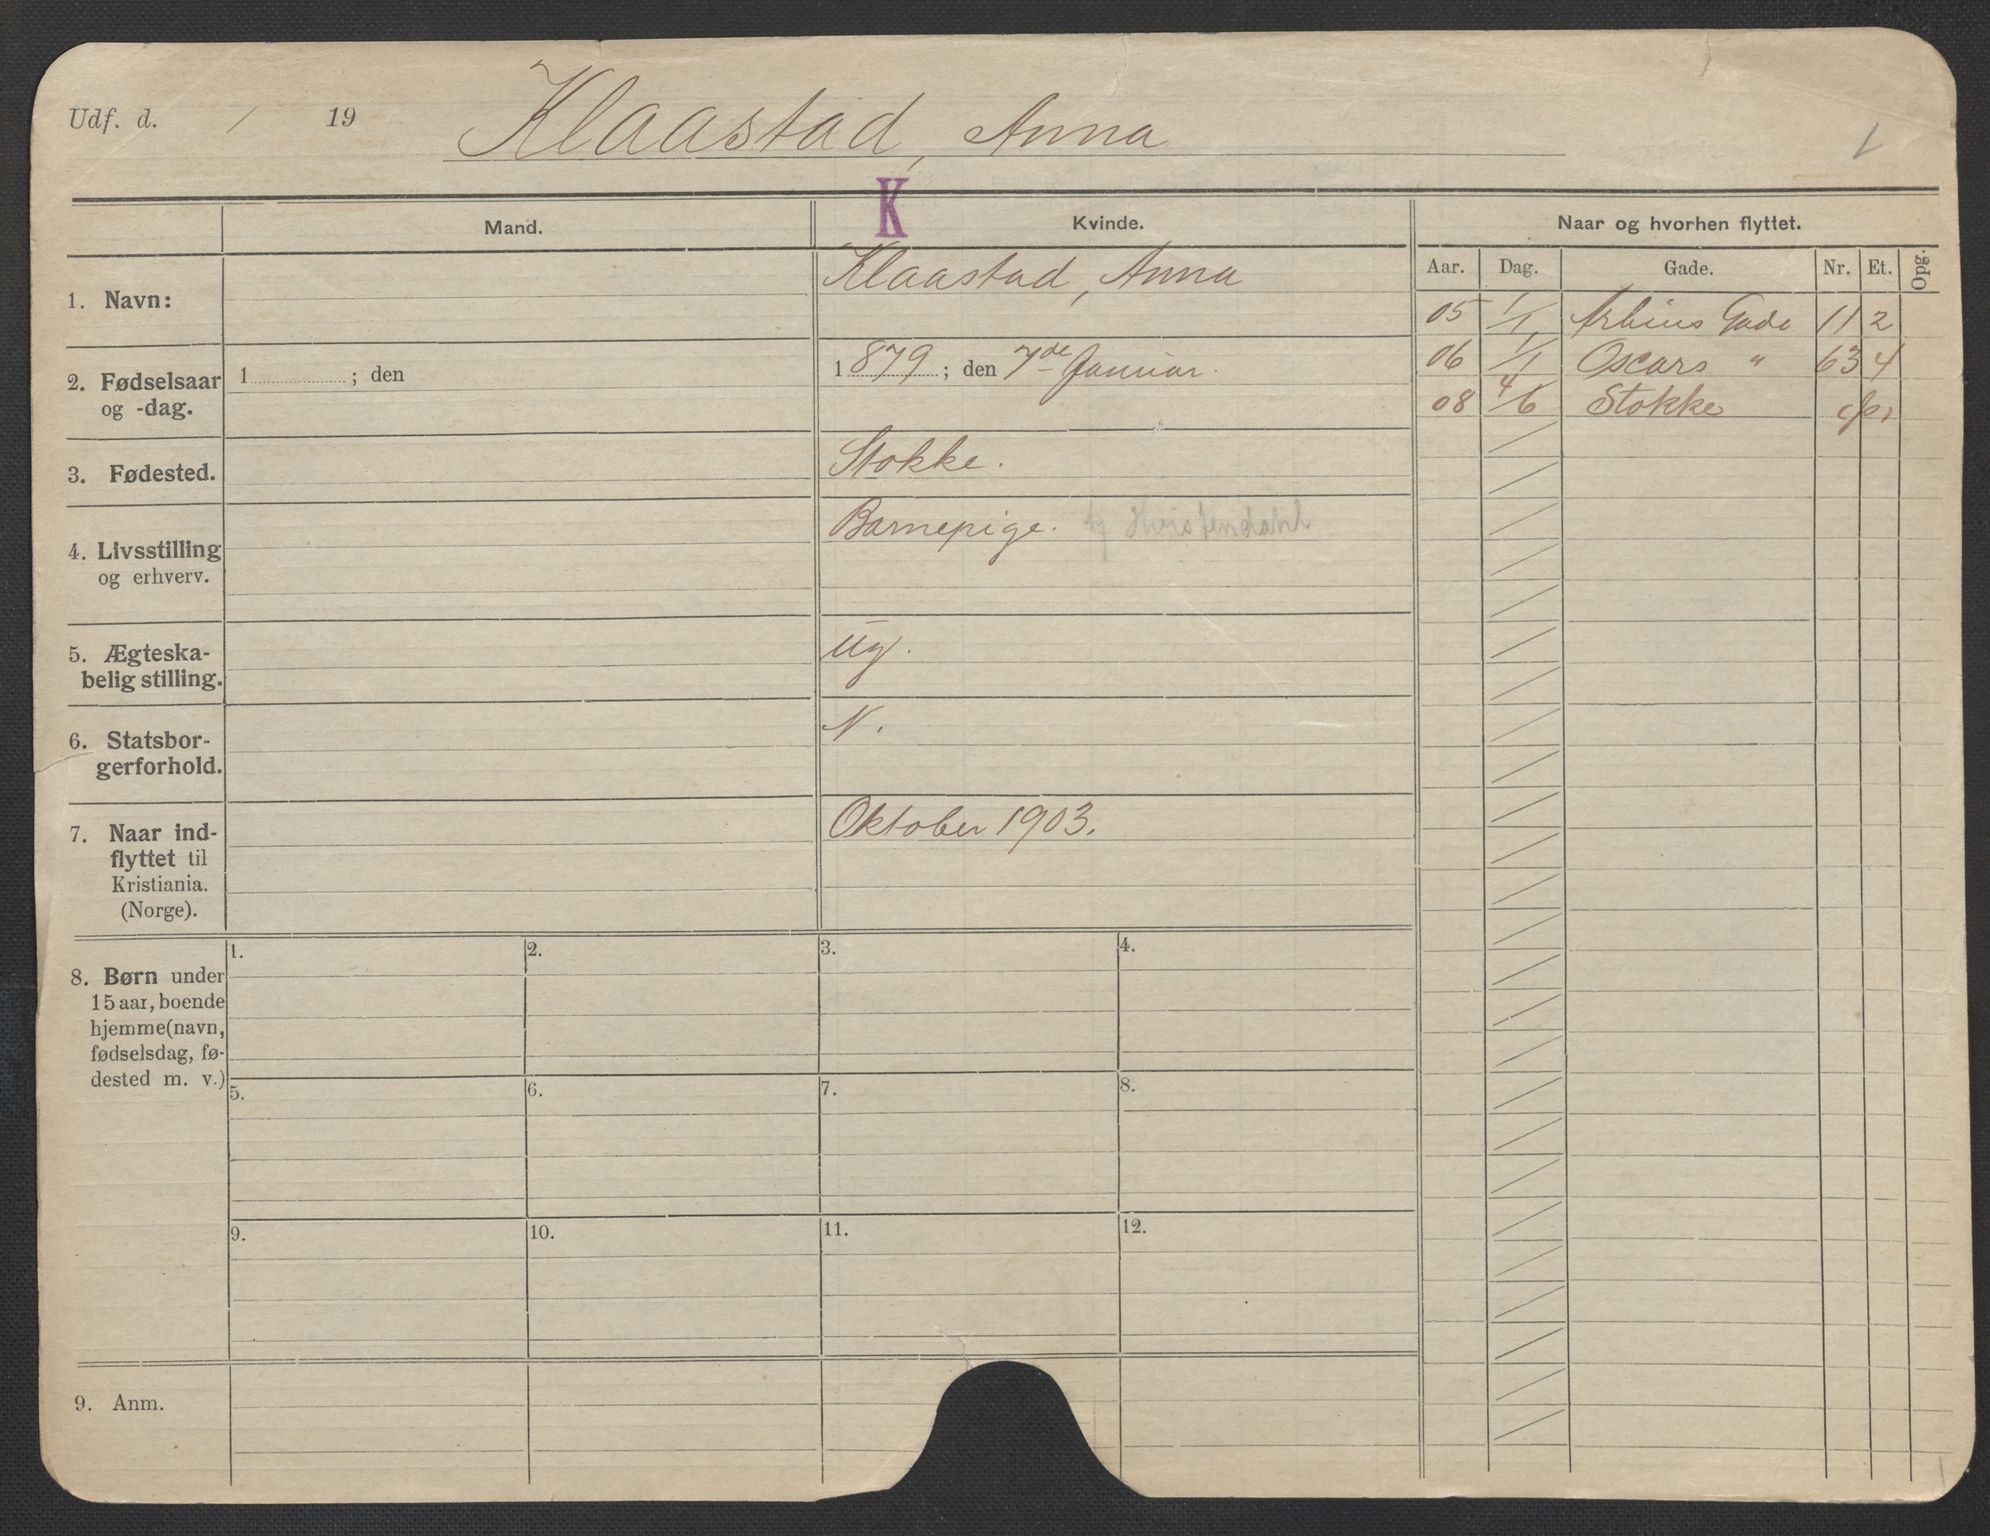 Udf. d. / 19 Klaastad, Anna
K
Mand. Kvinde. Naar og hvorhen flyttet.
Aar. Dag. Gade. Nr. Et. Opg.
1. Navn: Klaastad, Anna
05 1/1 Arbins Gade 11 2
06 1/1 Oscars " 63 4
08 4/6 Stokke
2. Fødselsaar
og -dag.
1 ; den
1879 ; den 7de Januar.
3. Fødested. Stokke.
4. Livsstilling
og erhverv.
Barnepige. Hvistendahl
5. Ægteska-
belig stilling.
Ug.
6. Statsbor-
gerforhold.
N.
7. Naar ind-
flyttet til
Kristiania.
(Norge).
Oktober 1903.
8. Børn under
15 aar, boende
hjemme (navn,
fødselsdag, fø-
dested m. v.)
1. 2. 3. 4.
5. 6. 7. 8.
9. 10. 11. 12.
9. Anm.